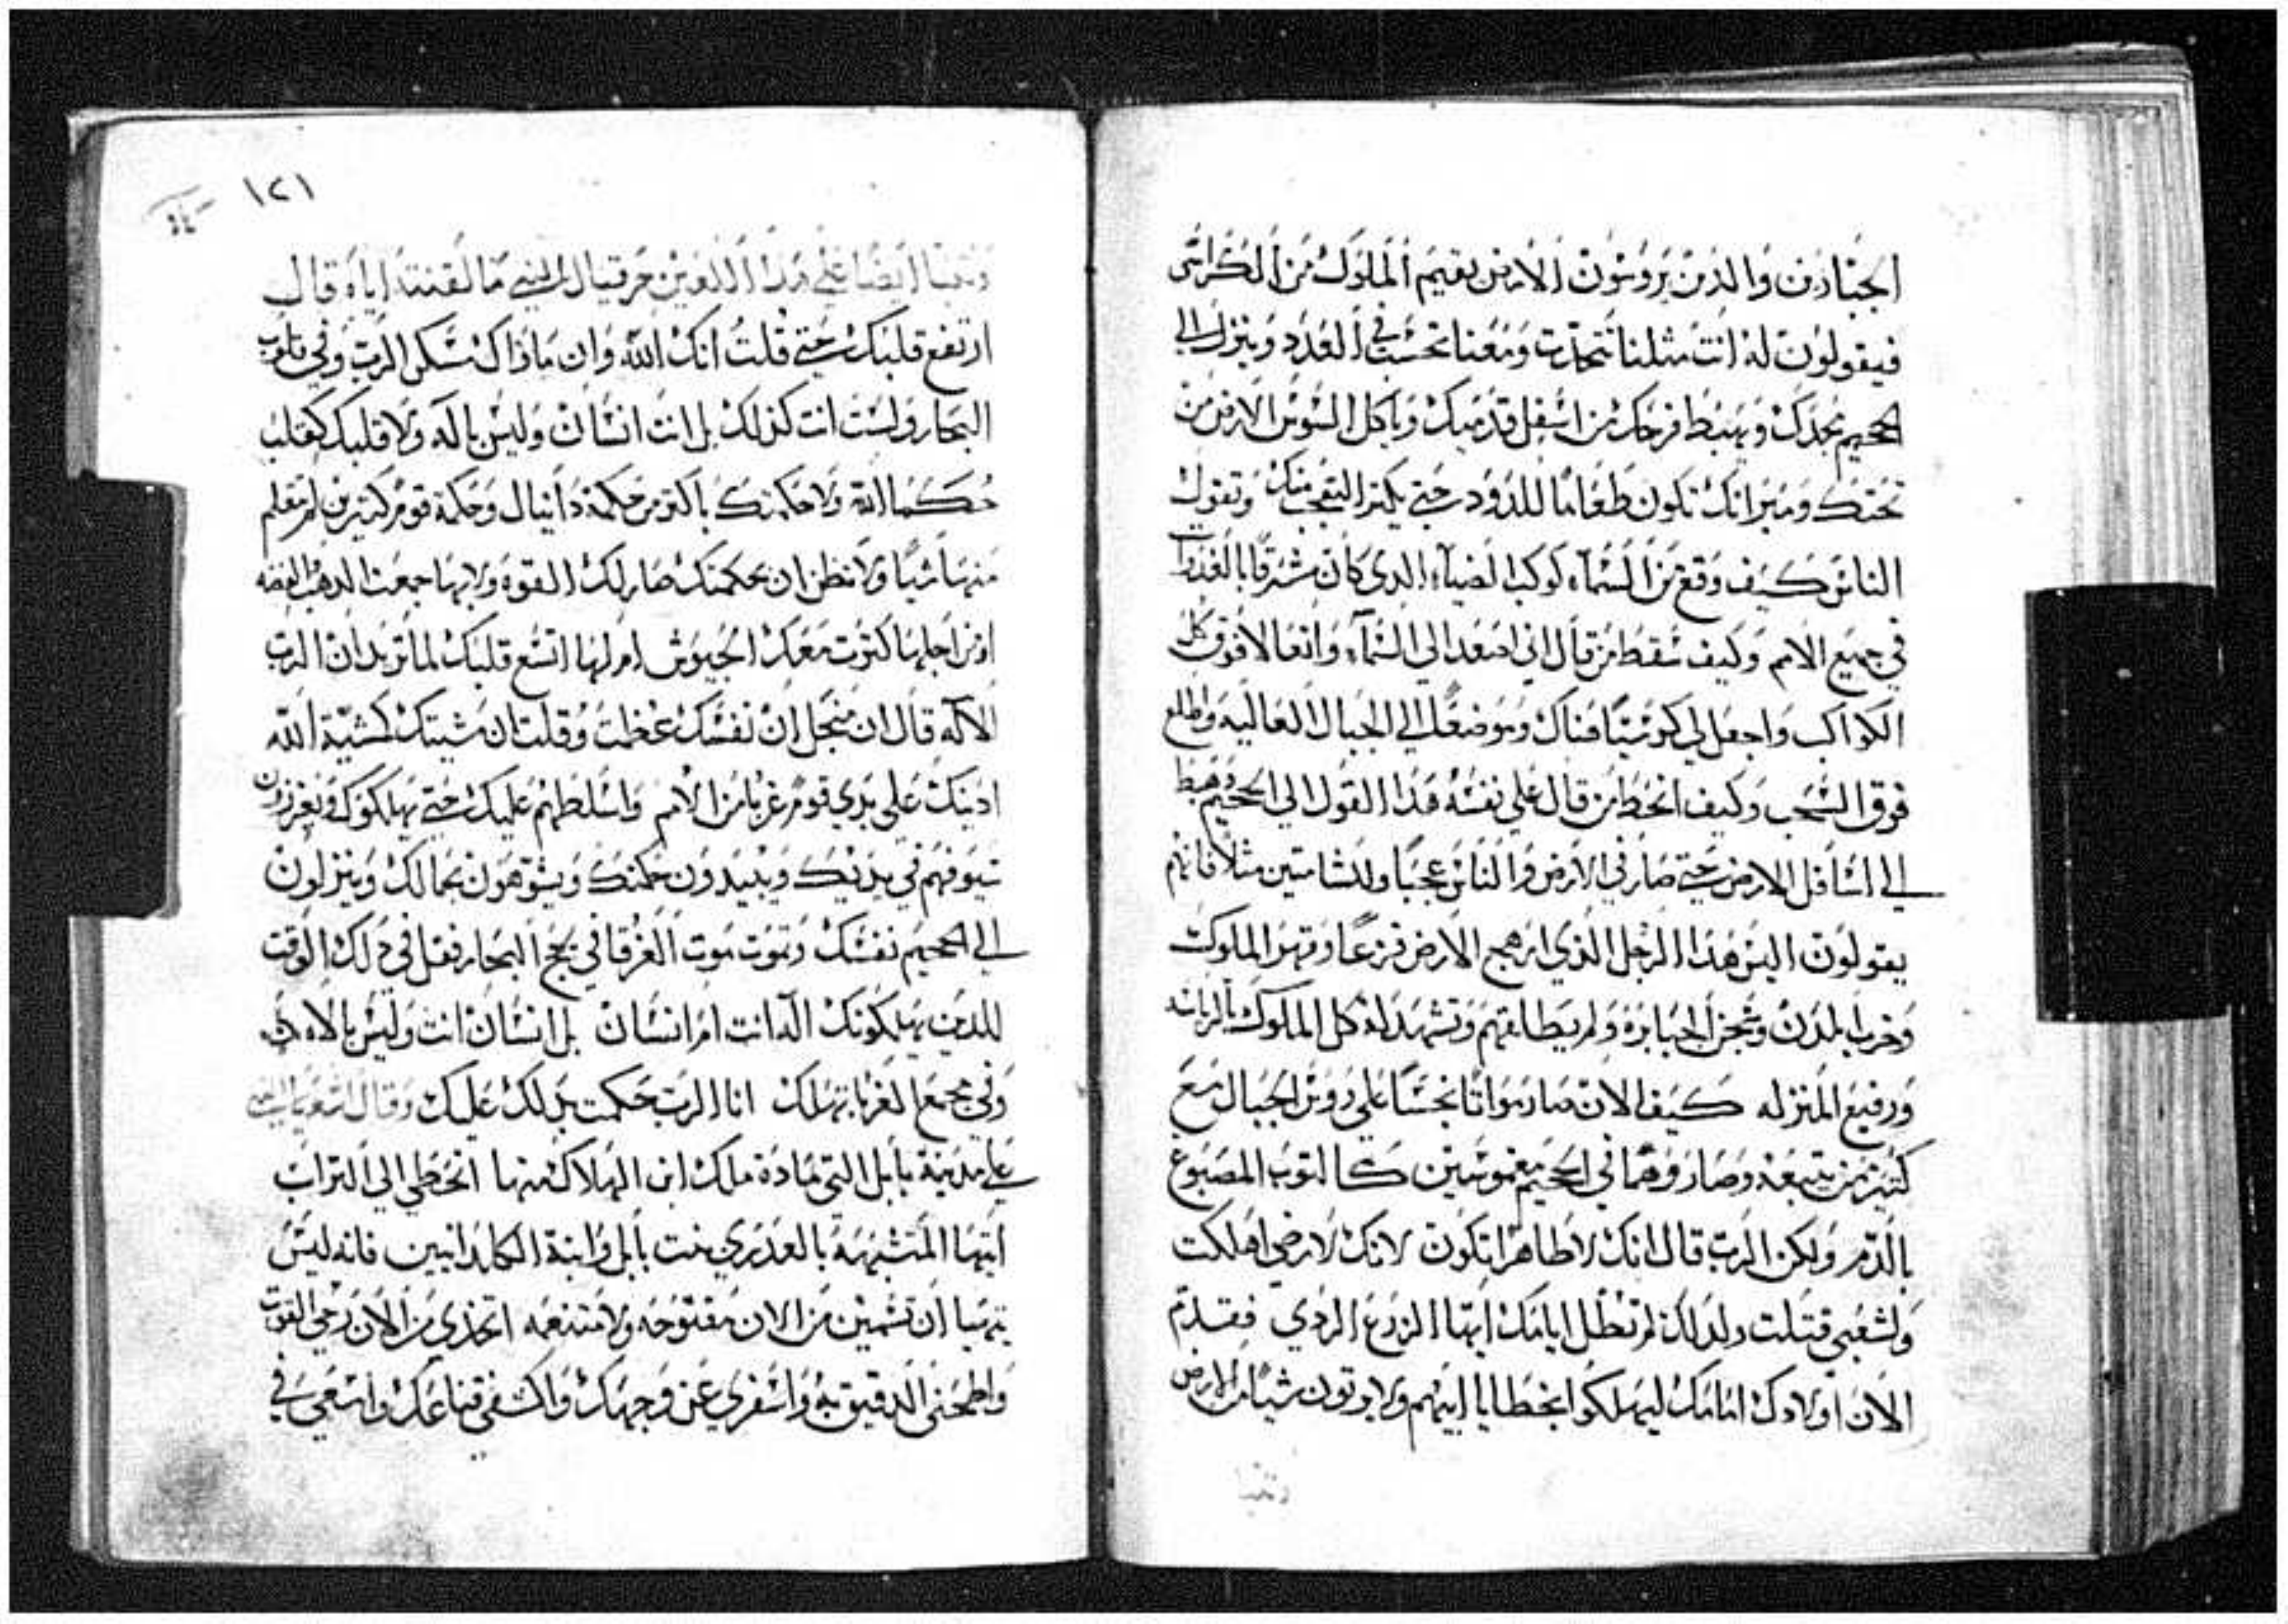 الجبارين والذين يروسون الارض يقيم الملوك من الكراسى
فيقولون له انت مثلنا تتحدث ومعنا تحسب في العدد وينزل الي
الجحيم مجدك ويهبط فرحك من اسفل قدميك وياكل السوس الارض من
تحتك وميراتك تكون طعاما للدود حتي يكتر التعجب منك وتقول
الناس كيف وقع من السماء كوكب الضياء الدي كان مشرقا بالغدوات
في جميع الامم وكيف سقط من قال اني اصعد الي السماء وانعالا فوق كل
الكواكب واجعل لي كرسيا هناك وموضعا الي الجبال العاليه واطلع
فوق السحب وكيف انحط من قال علي نفسه هذا القول الي الجحيم وهبط
الي اسافل الارض حتي صار في الارض والناس عجبا ولشامتين مثلا فانهم
يقولون اليس هذا الرجل الذي ارهج الارض فزعا وقهر الملوك
وخرب المدن وسجن الجبابرة ولم يطلقهم وتشهد له كل الملوك بالرياسه
ورفيع المنزله كيف الان صار مواتا نجسا علي روس الجبال مع
كتير من يتبعه وصار وهما في الجحيم مغموسين كالتوب المصبوغ
بالدم ولكن الرب قال انك لا طاهرا تكون لانك لارضي اهلكت
ولشعبي قتلت ولدلك لم تطل ايامك ايها الزرع الردي فقدم
الان اولادك امامك ليهلكوا بخطايا ابيهم ولا يوتون شيا من الارض
وتنبا
١٢١
وتنبا ايضا علي هدا اللعين حزقيال النبي مالقنته اياه قال
ارتفع قلبك حتي قلت انك الله وان ماواك مسكن الرب وفي قلوب
البحار ولست انت كدلك بل انت انسان وليس باله ولا قلبك كقلب
حكما الله ولا حكمتك باكتر من حكمة دانيال وحكمة قوم كتيرين لم تعلم
منها شيا ولا تظن ان بحكمتك صار لك القوه ولا بها جمعت الدهب والفضه
او من اجلها كترت معك الجيوش ام لها اتسع قلبك لما تريد ان الرب
الاله قال ان من اجل ان نفسك عظمت وقلت ان مشيتك كمشية الله
اديتك علي يدي قوم غربا من الامم واسلطهم عليك حتي يهلكوك ويغرزون
سيوفهم في يديك ويبيدون حكمتك ويشوهون بجمالك وينزلون
الي الجحيم نفسك وتموت موت الغرقا في لجج البحار فقل في دلك الوقت
للدين يهلكونك اله انت ام انسان بل انسان انت وليس بالاه
وفي مجمع الغربا تهلك انا الرب حكمت بدلك عليك وقال اشعيا النبي
علي مدينة بابل التي مادة ملك ابن الهلاك منها انحطي الي التراب
ايتها المتشبهه بالعدري بنت بابل وابنة الكلدانيين فانه ليس
يتهيا ان تسمين من الان مفتوحه ولا متنعمه اتخدي من الان رحي القوت
واطحني الدقيق به واسفري عن وجهك واكشفي قناعك واسعي في